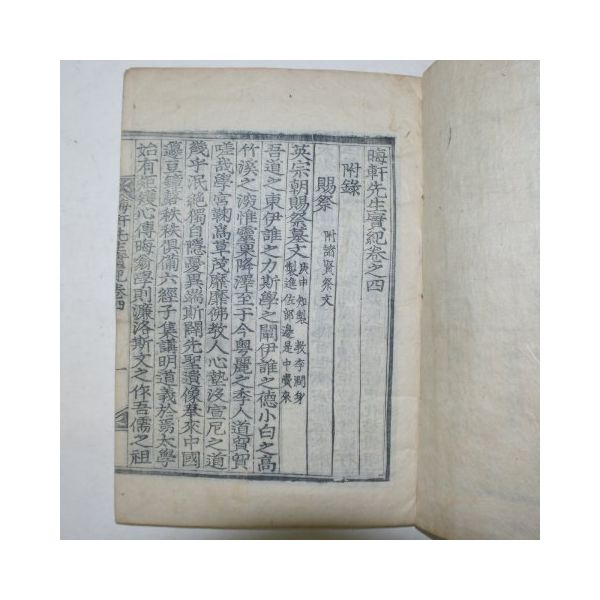 晦軒先生實紀卷之四
附錄
賜祭 附諸賢祭文
英宗朝賜祭墓文 庚申知製 教李潤身
製進佐郎邊是中賫來
吾道之東伊誰之力斯學之闡伊誰之德小白之高
竹溪之淑惟靈奧降澤至于今粤麗之季人道貿貿
嗟哉學宮鞠爲草茂靡靡佛教人心墊沒宣尼之道
幾乎泯絶獨自隱憂異端斯闢先聖遺像奉來中國
籩豆鐘磬秩秩俱備六經子集講明道義於焉太學
始有矩矱心傳晦翁學則濂洛斯文之作吾儒之祖
晦軒先生實紀卷四
一